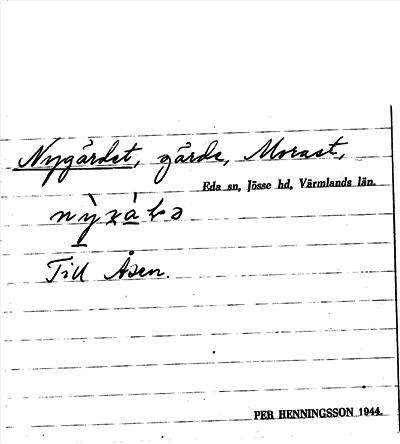 Nygärdet, gärde, Morast,
Eda sn, Jösse hd, Värmlands län.
Till Åsen.
PER HENNINGSSON 1944.